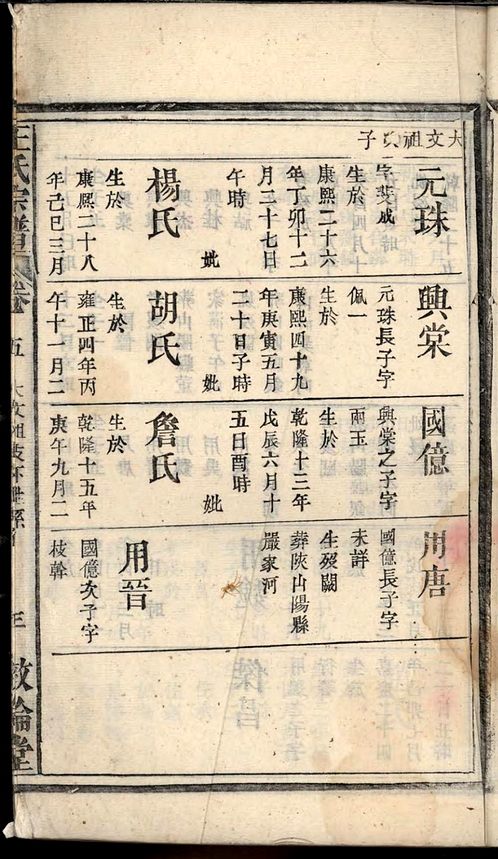 大文祖
子
元珠
字斐成
生於
康熙二十六
年丁卯十二
月三十七日
午時
妣
楊氏
生於
康熙二十八
年己巳三月
興棠
元珠長子字
佩一
生於
康熙四十九
年庚寅五月
二十日子時
妣
胡氏
生於
雍正四年丙
午十一月二
國億
興棠之子字
兩玉
生於
乾隆十三年
戊辰六月十
五日酉時
妣
詹氏
生於
乾隆十五年
庚午九月二
用唐
國億長子字
未詳
生歿闕
葬陝山陽縣
嚴家河
用晉
國億次子字
枝幹
王氏宗譜
卷
五
大文祖
三
敦倫堂